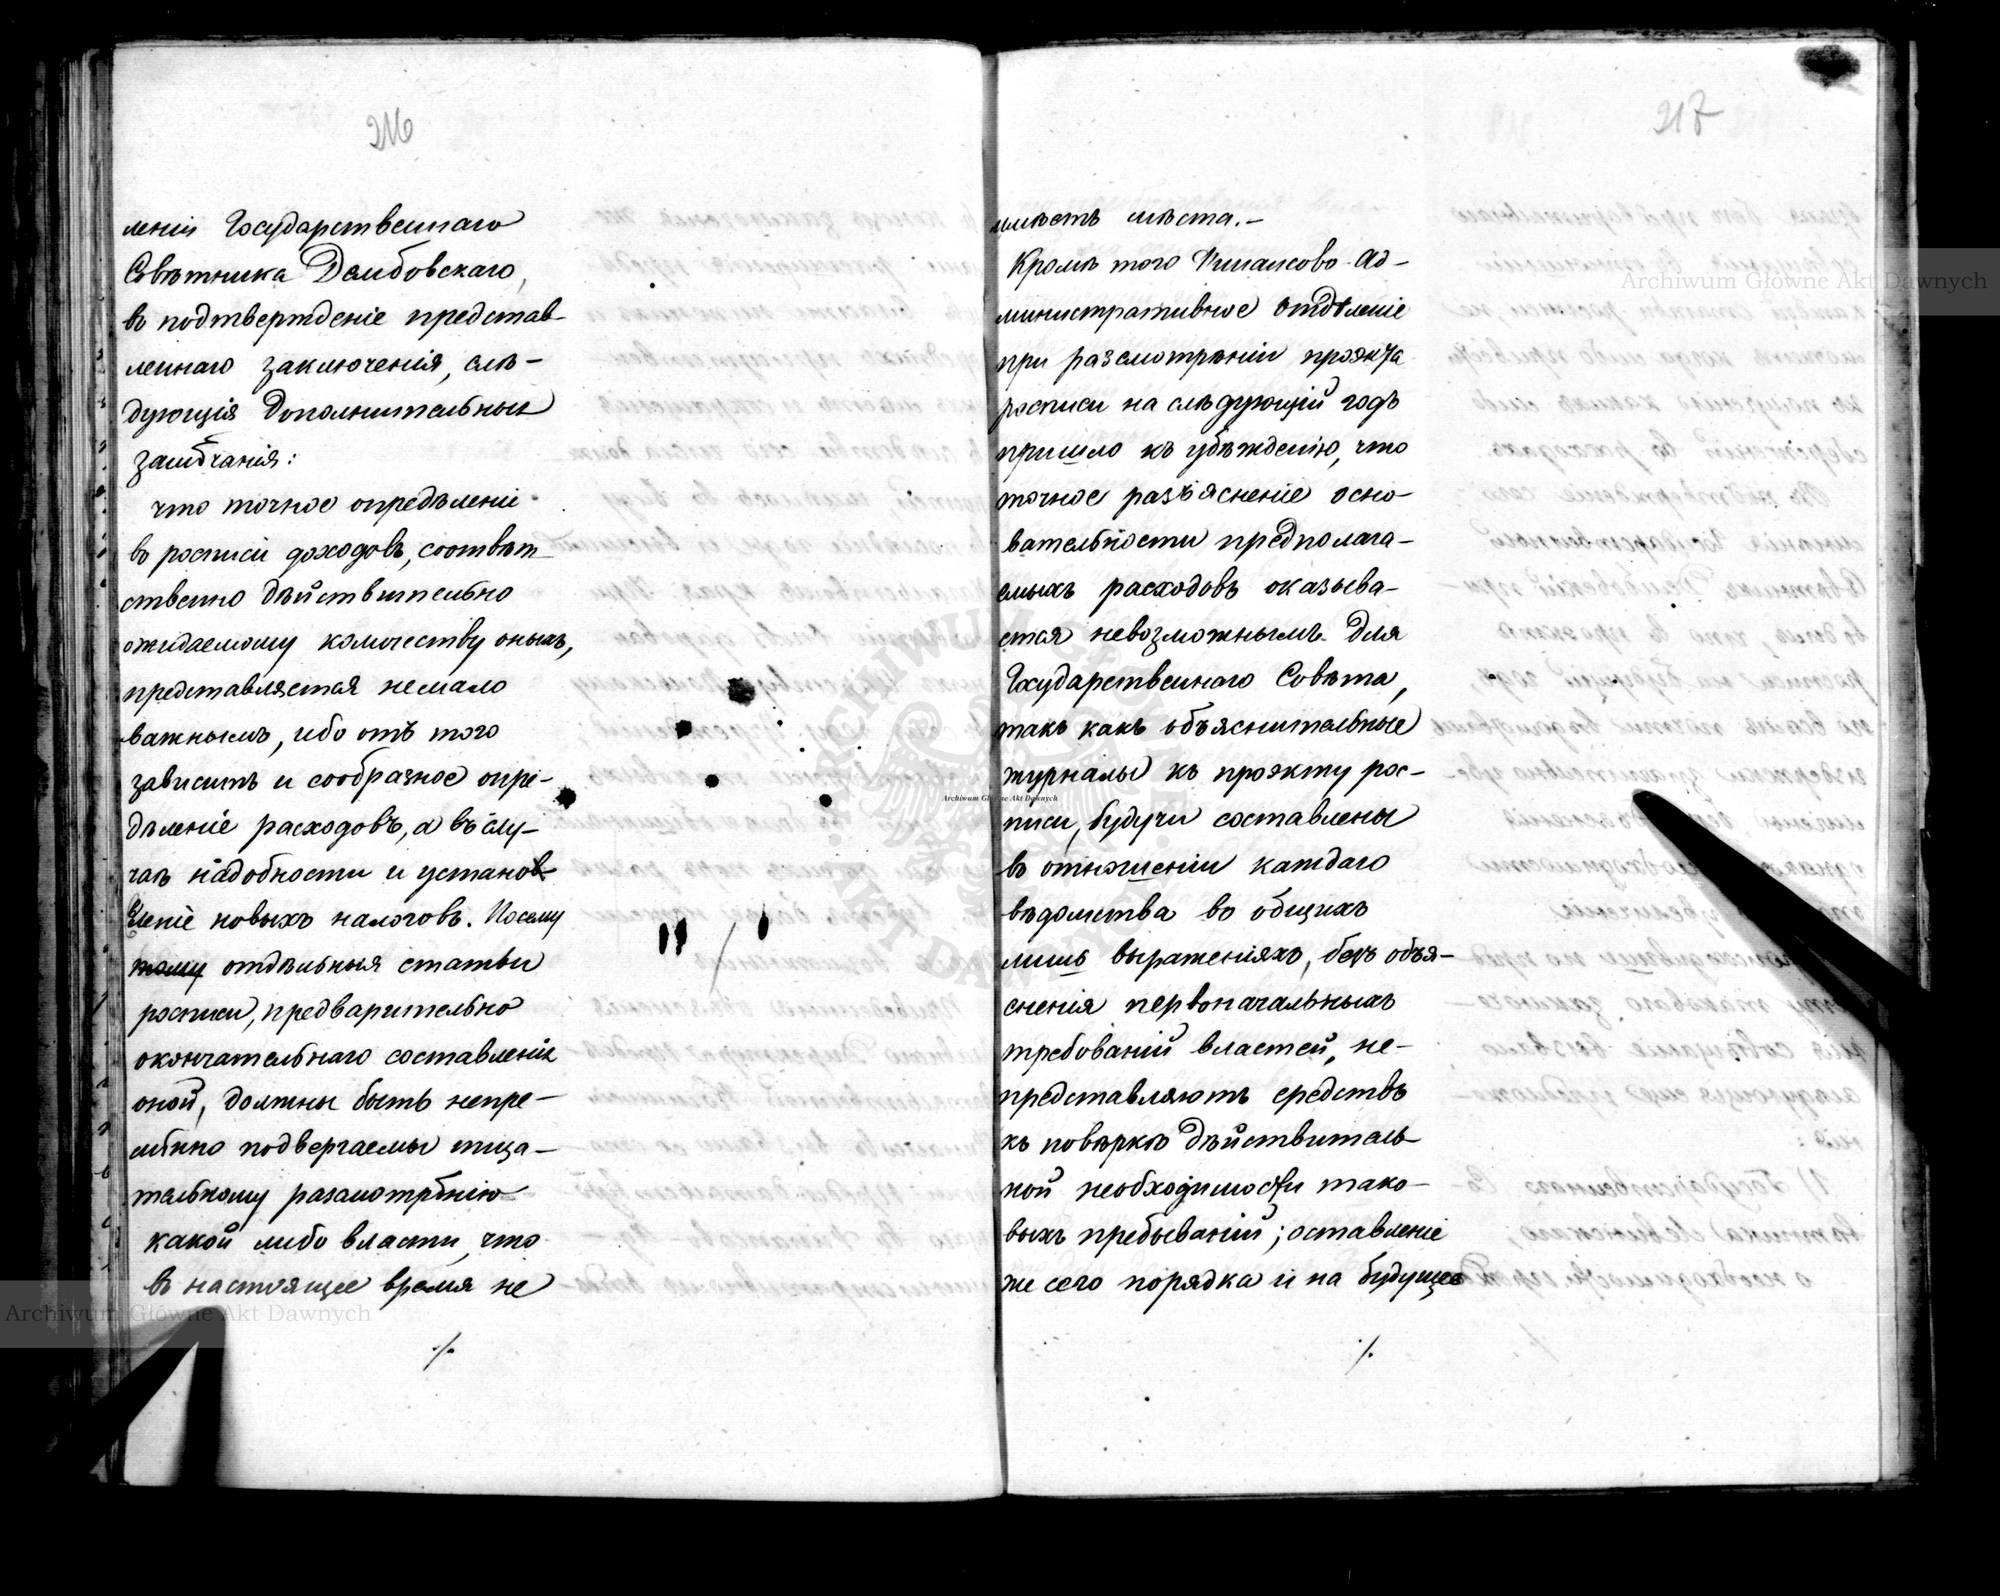 216
ленія Государственнаго
Совѣтника Дембовскаго,
во подтвержденіе представ-
леннаго заключенія, слѣ-
дующія дополнительныя
замѣчанія:
что точное опредѣленіе
во росписи доходовъ, соотвѣт-
ственно дѣйствительно
ожидаемому количеству оныхъ,
представляется немало
важнымъ, ибо отъ того
зависитъ и сообразное опре-
дѣленіе расходовъ, а въ слу-
чаѣ надобности и установ-
леніе новыхъ налоговъ. Посему
тому отдѣльныя статьи
росписи, предварительно
окончательнаго составленія
оной, должны быть непре-
мѣнно подвергаемы тща-
тельному разсмотрѣнію
какой либо власти, что
въ настоящее время не
./.
217
имѣетъ мѣста.-
Кромѣ того Финансово-Ад-
министративное отдѣленіе
при разсмотрѣніи проэкта
росписи на слѣдующій годъ
пришло къ убѣжденію, что
точное разъясненіе осно-
вательности предполага-
емыхъ расходовъ оказыва-
ется невозможнымъ для
Государственнаго Совѣта,
такъ какъ объяснительные
журналы къ проэкту рос-
писи, будучи составлены
въ отношеніи каждаго
вѣдомства во общихъ
лишь выраженіяхъ, безъ объя-
сненія первоначальныхъ
требованій властей, не-
представляютъ средствъ
къ повѣркѣ дѣйствитель-
ной необходимости тако-
выхъ требованій; оставленіе
же сего порядка и на будущее
./.
Archiwum Główne Akt Dawnych
Archiwum Główne Akt Dawnych
Archiwum Główne Akt Dawnych